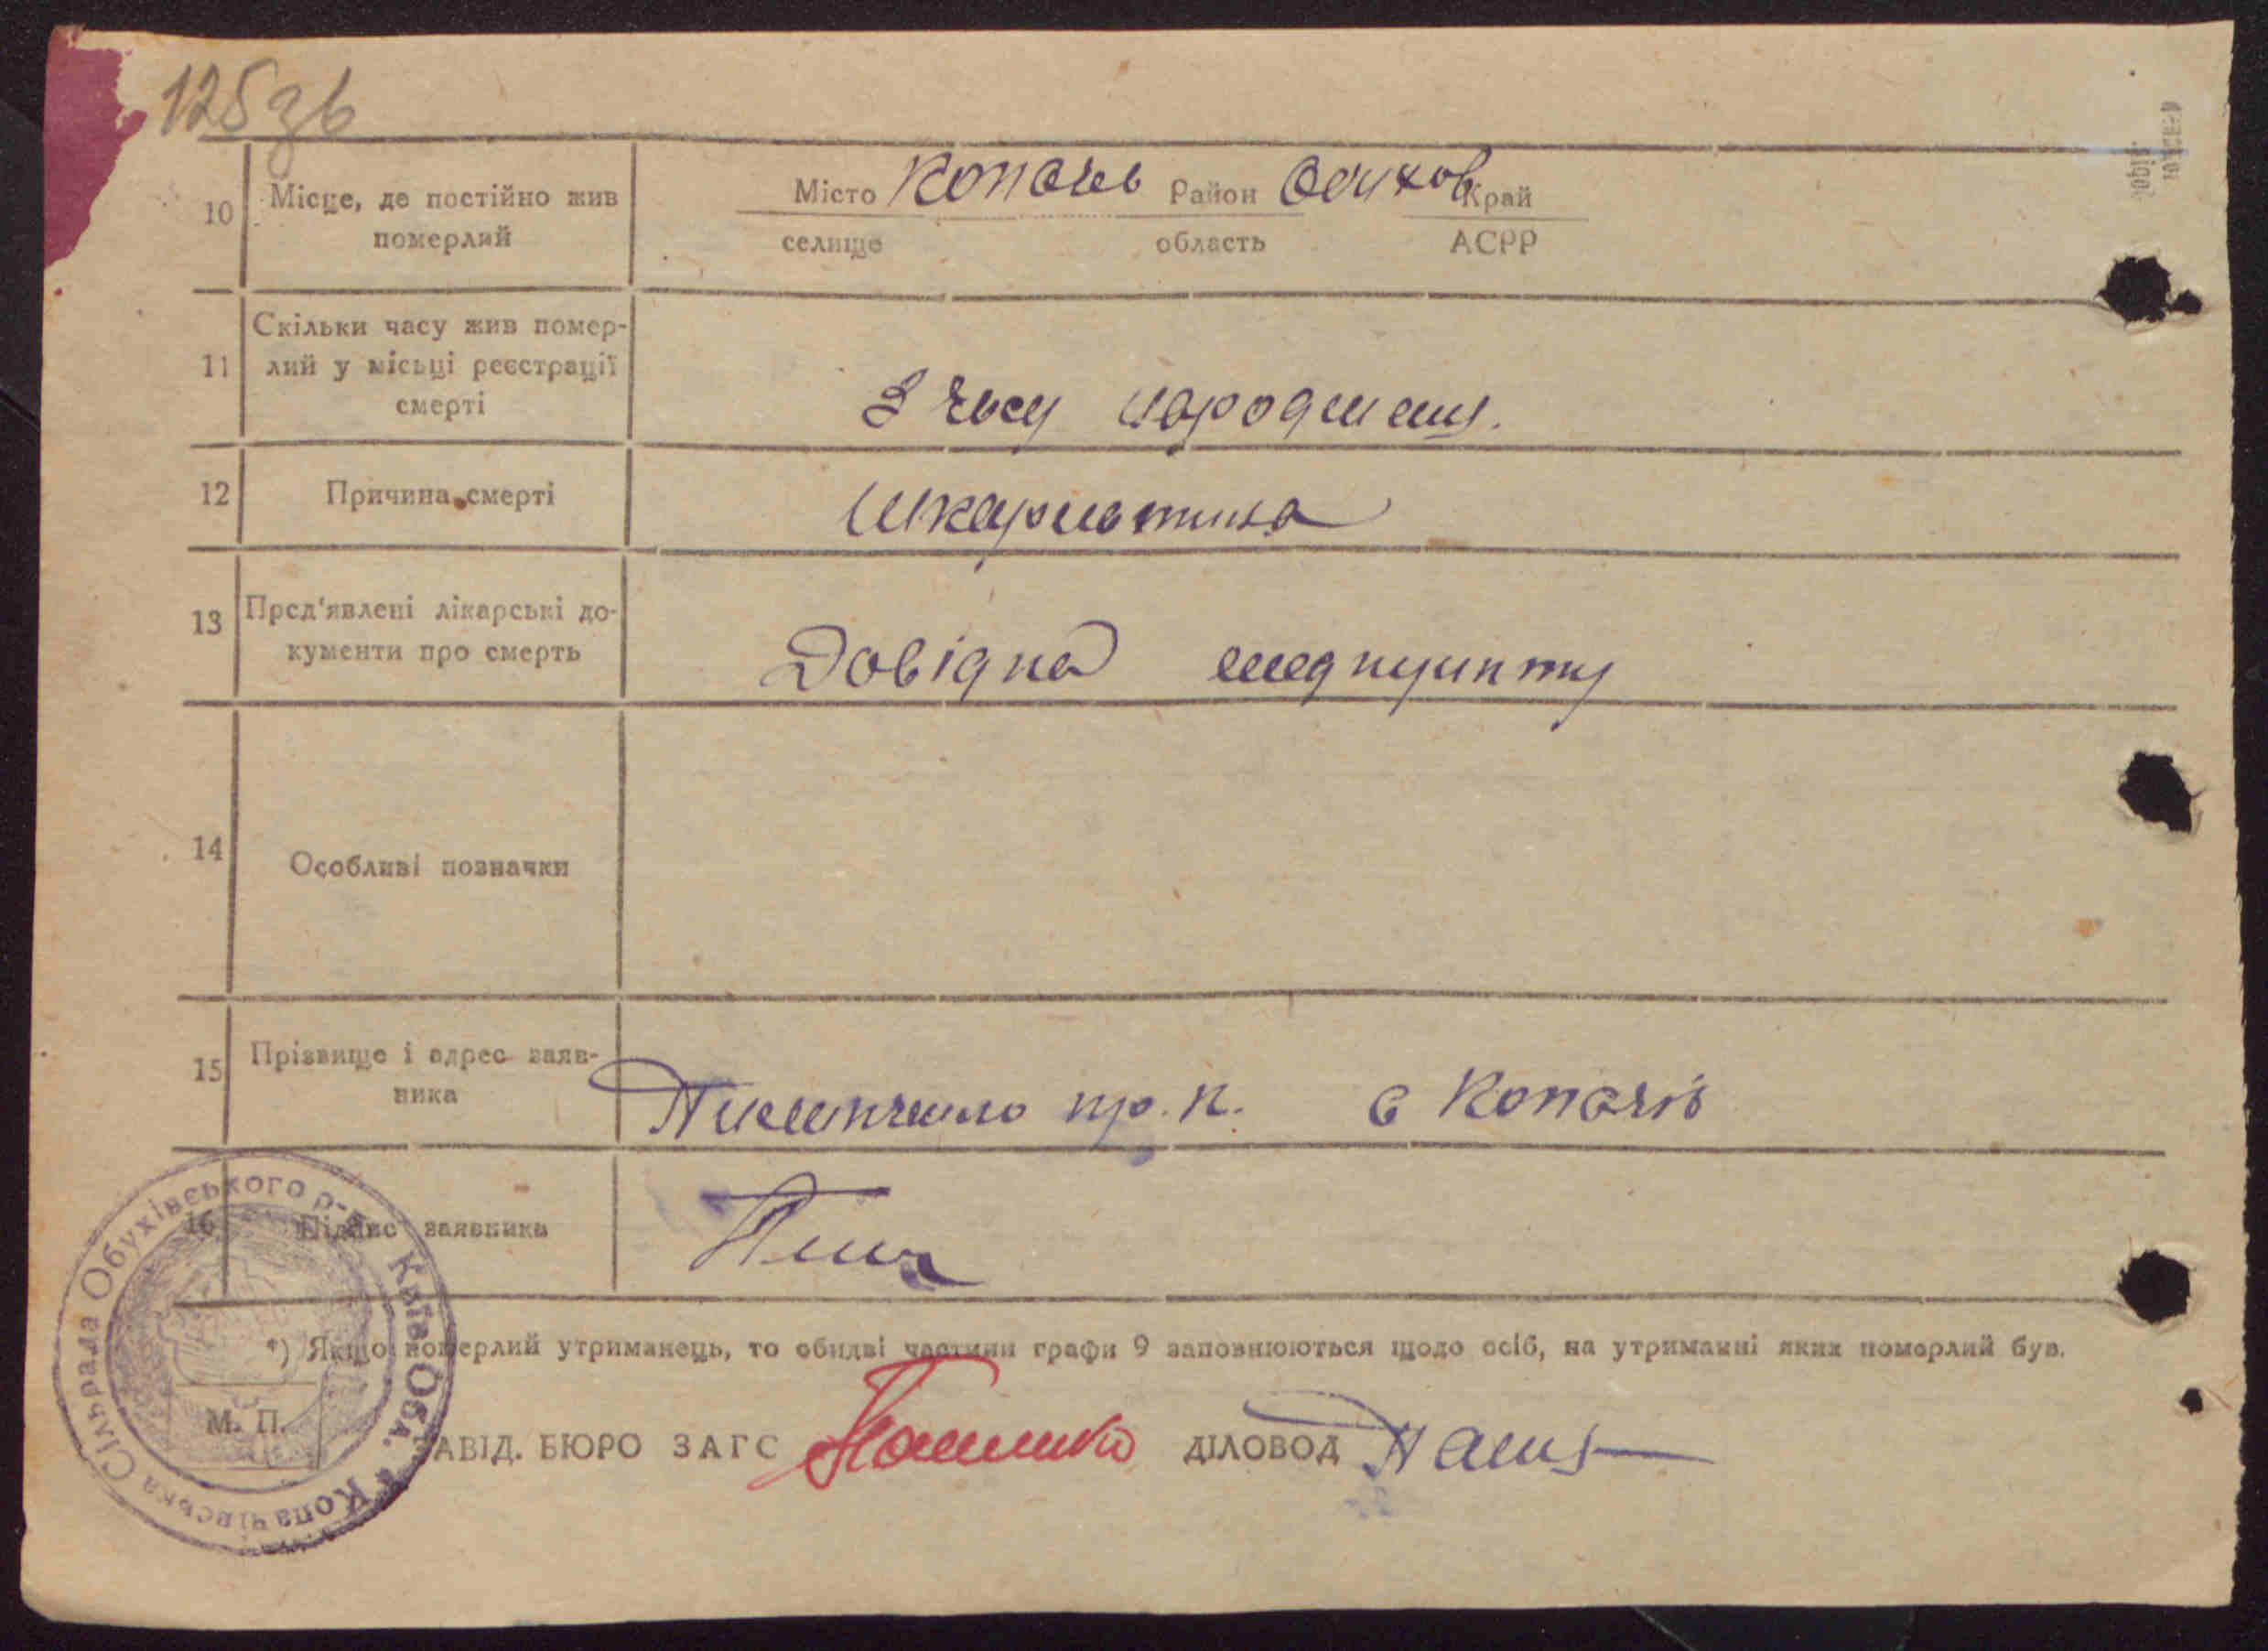 125зв
10 Місце, де постійно жив померлий
Місто Копачів Район Обухов Край
селище область АСРР
11 Скільки часу жив помер-
лий у місьці реєстрації
смерті
З часу народження.
12 Причина смерті
Шкарлатина
13 Пред'явлені лікарські до-
кументи про смерть
Довідка медпункту
14 Особливі позначки
15 Прізвище і адрес заяв-
ника
пр. к. с Копачів
16 Підпис заявника
*) Якщо померлий утриманець, то обидві частини графи 9 заповнюються щодо осіб, на утриманні яких померлий був.
М. П.
ЗАВІД. БЮРО ЗАГС ДІЛОВОД
Копачівська Сільрада Обухівського р-н Київ Обл.